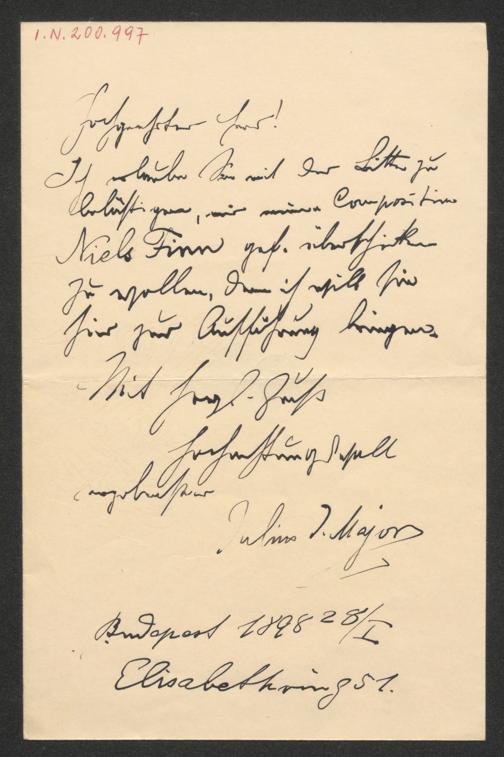 I.N.200.997
Hochgeehrter Herr!
Ich erlaube Sie mit der Bitte zu
belästigen, mir meine Composition
Niels Finn gef. überschicken
zu wollen, denn ich will sie
hier zur Aufführung bringen.
Mit herzl. Gruß
Hochachtungsvoll
ergebenster
Julius J. Major
Budapest 1898 28/I
Elisabethring 51.